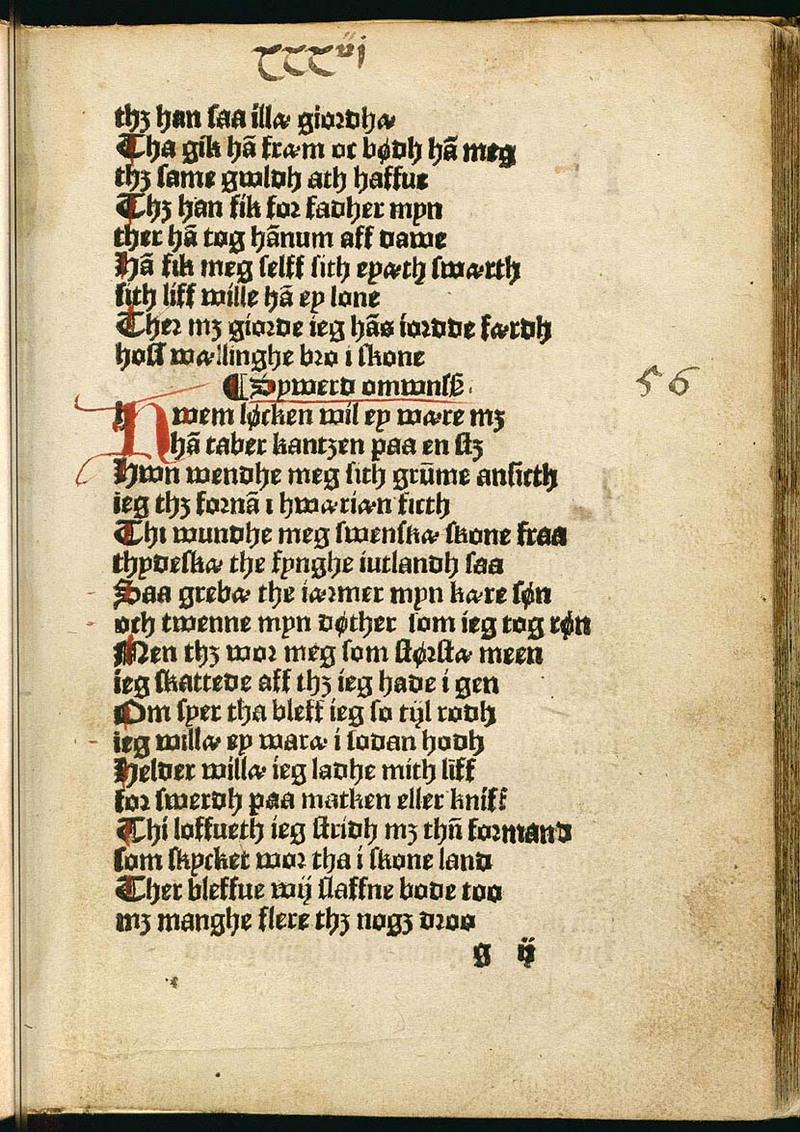 xxxvij
thꝫ han saa illæ giordhæ
Tha gik hā fræm oc bødh hā meg
thꝫ same gwldh ath haffue
Thꝫ han fik for fadher myn
ther hā tog hānum aff dawe
Hā fik meg selff sith eyæth swærth
sith liff wille hā ey lone
Ther mꝫ giorde ieg hās iordde færdh
hoss wællinghe bro i skone
¶ Sywerd omwnsß.
56
Hwem løcken wil ey wære mꝫ
hā taber kantzen paa en stꝫ
Hwn wendhe meg sith grūme ansicth
ieg thꝫ fornā i hwæriæn ficth
Thi wundhe meg swenskæ skone fraa
thydeskæ the fynghe iutlandh saa
Saa grebæ the iærmer myn kære søn
och twenne myn døther som ieg tog røn
Men thꝫ wor meg som størstæ meen
ieg skattede aff thꝫ ieg hade i gen
Om syer tha bleff ieg so tijl rodh
ieg willæ ey waræ i sodan hodh
Helder willæ ieg ladhe mith liff
for swerdh paa marken eller kniff
Thi loffueth ieg stridh mꝫ thū formand
som skycket wor tha i skone land
Ther bleffue wij slaffne bode too
mꝫ manghe flere thꝫ nogꝫ droo
g ij